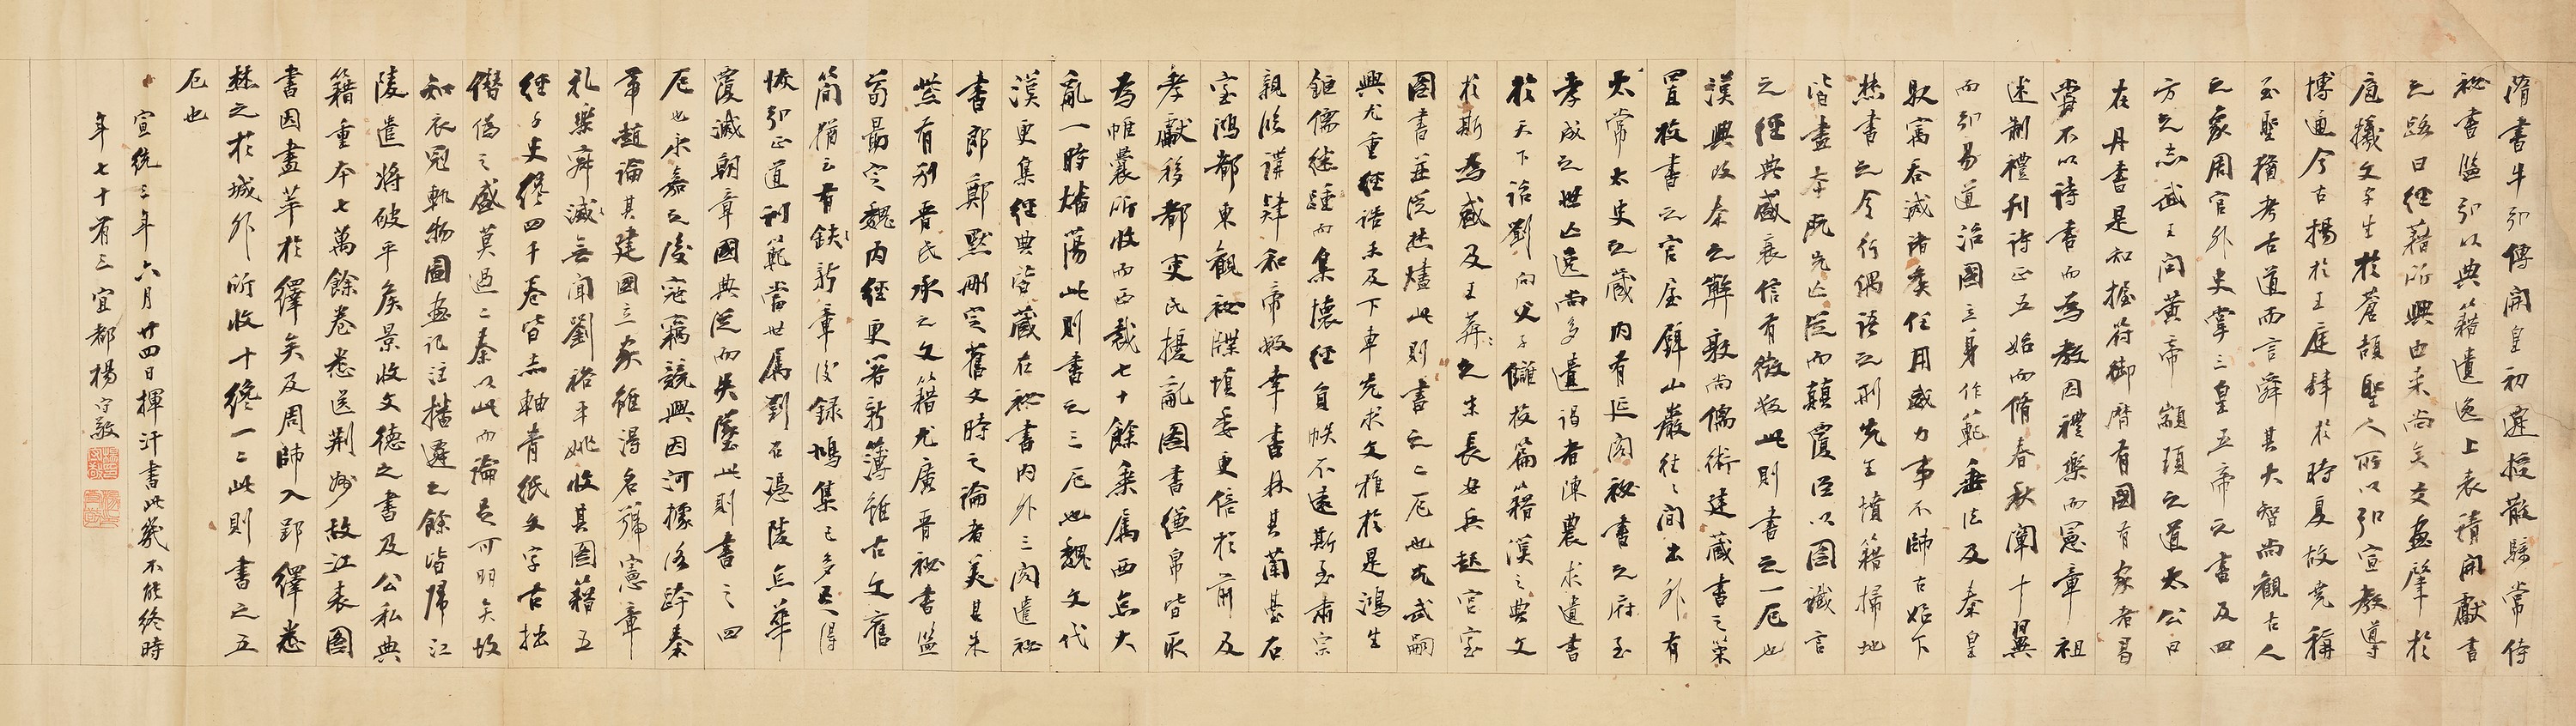 隋書牛弘傳開皇初遷授散騎常侍
秘書監弘以典籍遺逸上表請開獻書
之路曰經藉所興由来尚矣爻畫肇於
庖犧文字生於蒼頡聖人所以弘宣教導
博通今古揚於王庭肆於時夏故堯稱
至聖猶考古道而言舜其大智尚觀古人
之象周官外史掌三皇五帝之書及四
方之志武王問黃帝顓頊之道太公曰
在丹書是知握符御曆有國有家者曷
嘗不以詩書而為教因禮樂而憲章祖
述制禮刊詩正五始而脩春秋闡十翼
而弘易道治國立身作範垂法及秦皇
馭寓吞滅諸侯任用威力事不師古始下
焚書之令行偶語之刑先王墳籍掃地
皆盡本既先亡從而顛覆臣以圖讖言
之經典盛衰信有徵數此則書之一厄也
漢興改秦之弊敦尚儒術建藏書之策
置校書之官屋壁山巖往往間出外有
太常太史之藏內有延閣秘書之府至
孝成之世亡逸尚多遣謁者陳農求遺書
於天下詔劉向父子讎校篇籍漢之典文
於斯為盛及王莽之末長安兵起宮室
圖書並從焚燼此則書之二厄也光武嗣
興尤重經誥未及下車先求文雅於是鴻生
鉅儒継踵而集懷經負帙不遠斯至肅宗
親臨講肄和帝數幸書林其蘭臺石
室鴻都東觀秘牒填委更倍於前及
孝獻移都吏民擾亂圖書縑帛皆取
為帷囊所收而西裁七十餘乘属西京大
亂一時燔蕩此則書之三厄也魏文代
漢更集經典皆藏在秘書內外三閣遣秘
書郎鄭默刪定舊文時之論者美其朱
紫有別晋氏承之文籍尤廣晋秘書監
荀勗定魏內經更著新簿雖古文舊
簡猶云有缺新章後録鳩集已多足得
恢弘正道訓範當世属劉石憑陵京華
覆滅朝章國典從而失墜此則書之四
厄也永嘉之後寇竊競興因河據洛跨秦
帶趙論其建國立家雖得名號憲章
礼樂寂滅無聞劉裕平姚收其圖藉五
經子史纔四千卷皆赤軸青紙文字古拙
僭偽之盛莫過二秦以此而論足可明矣故
知衣冠軌物圖畫記注播遷之餘皆歸江
陵遣將破平侯景收文德之書及公私典
籍重本七萬餘卷悉送荆州故江表圖
書因盡萃於繹矣及周師入郢繹悉
焚之於城外所收十纔一二此則書之五
厄也
宣統三年六月廿四日揮汗書此幾不能終時
年七十有三宜都楊守敬